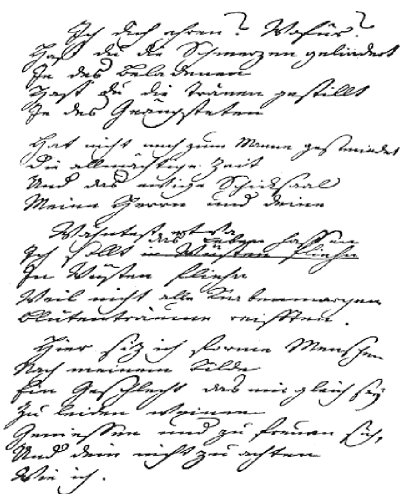 Ich dich ehren? Wofür?
Hast du die Schmerzen gelindert
Je des Beladenen
Hast du die Tränen gestillt
Je des Geängsteten
Hat nicht mich zum Manne geschmiedet
Die allmächtige Zeit
Und das ewige Schicksaal
Meine Herrn und deine
Wähntest etwa
Ich sollt das Leben hassen
in Wüsten fliehn
In Wüsten fliehn
Weil nicht alle Knabenmorgen
Blütenträume reifften.
Hier siz ich forme Menschen
Nach meinem Bilde
Ein Geschlecht das mir gleich sey
Zu leiden weinen
Geniessen und zu freuen sich,
Und dein nicht zu achten
Wie ich.